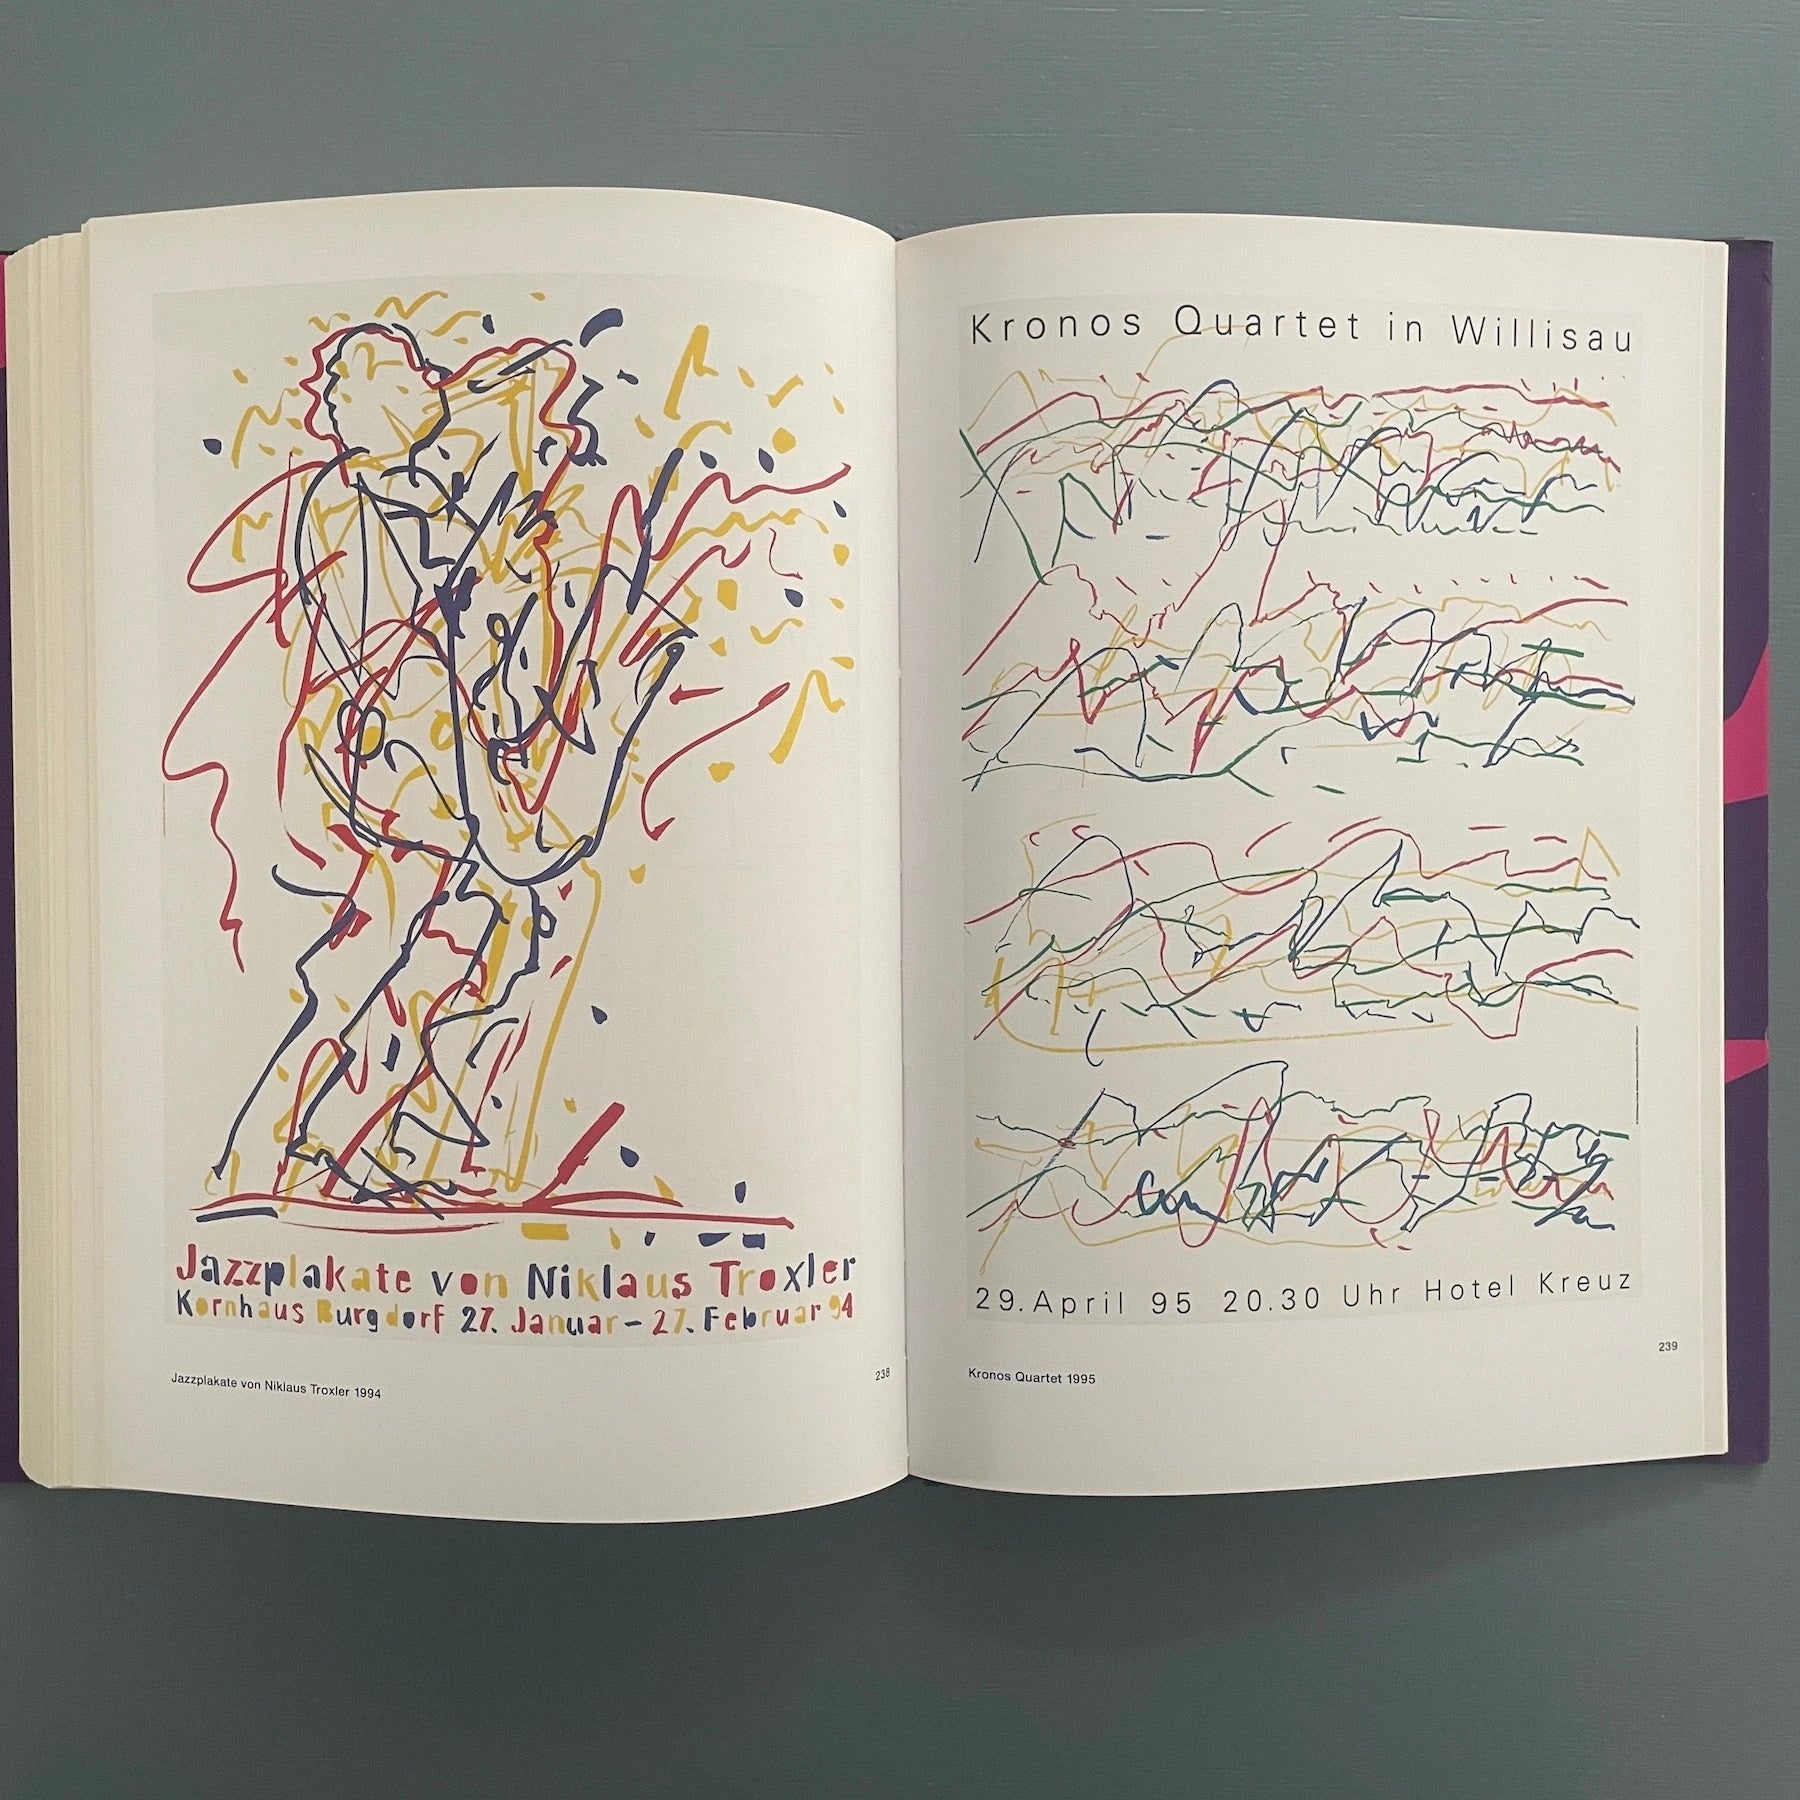 Jazzplakate von Niklaus Troxler
Kornhaus Burgdorf 27. Januar – 27. Februar 94
Jazzplakate von Niklaus Troxler 1994
238
Kronos Quartet in Willisau
29. April 95 20.30 Uhr Hotel Kreuz
239
Kronos Quartet 1995